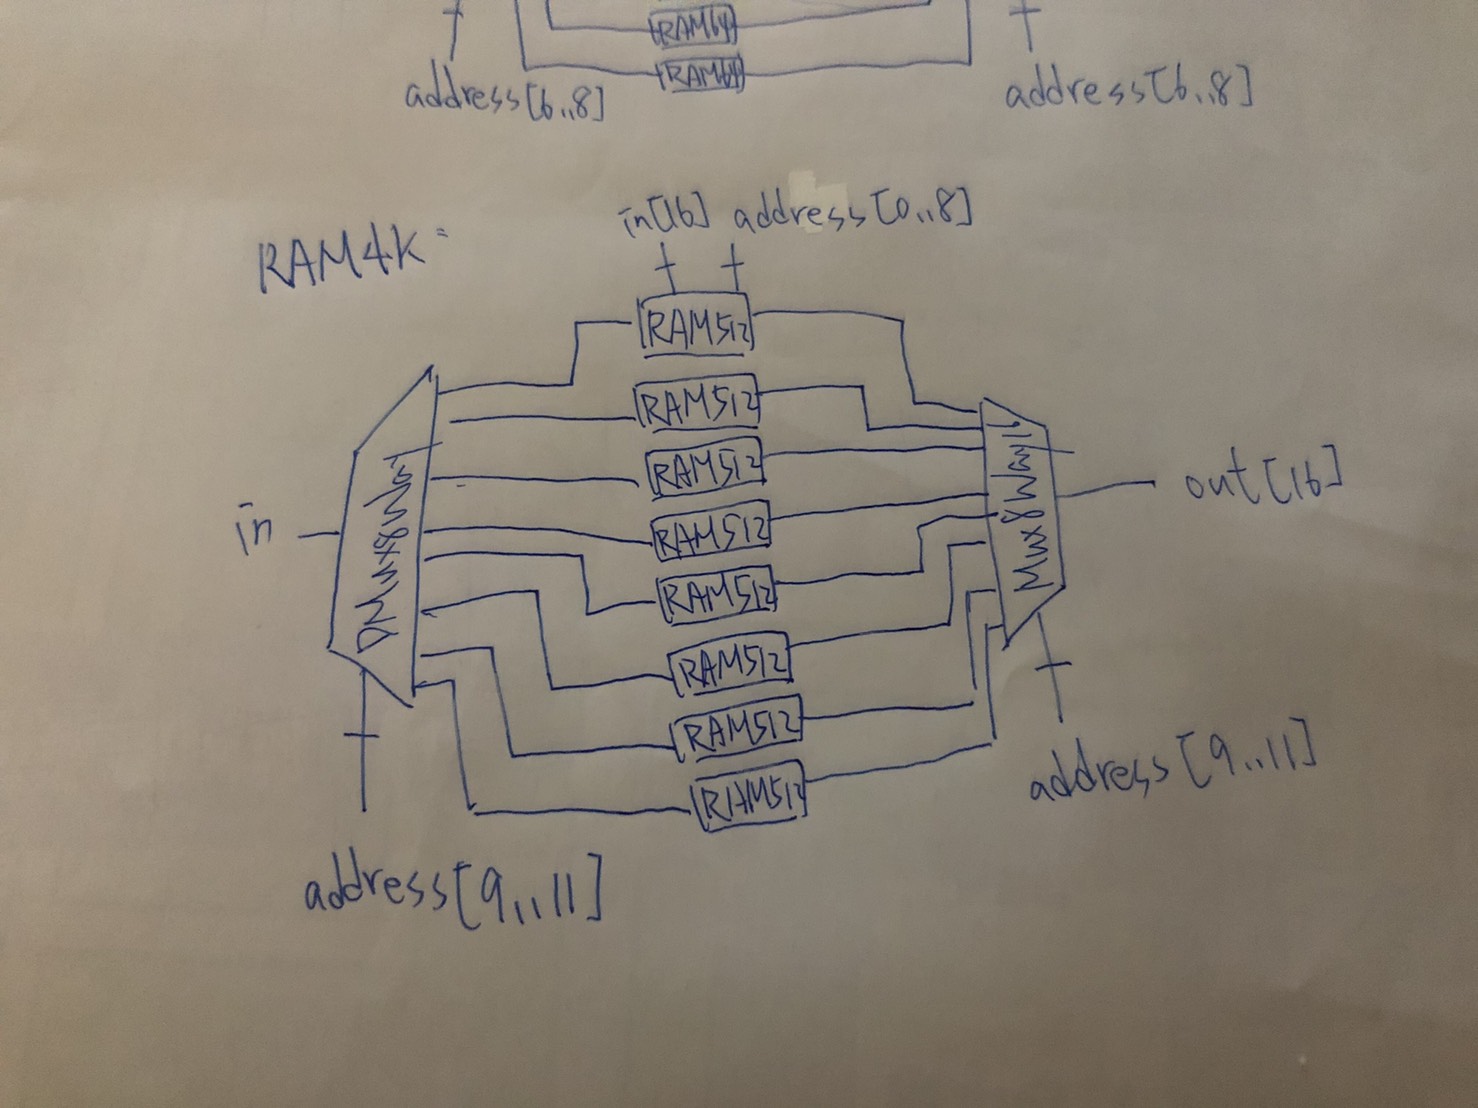 RAM64
RAM64
address[6..8]
address[6..8]
in[16] address[0..8]
RAM4K:
RAM512
RAM512
RAM512
RAM512
RAM512
RAM512
RAM512
RAM512
DMux8Way
Mux8Way16
in
out[16]
address[9..11]
address[9..11]